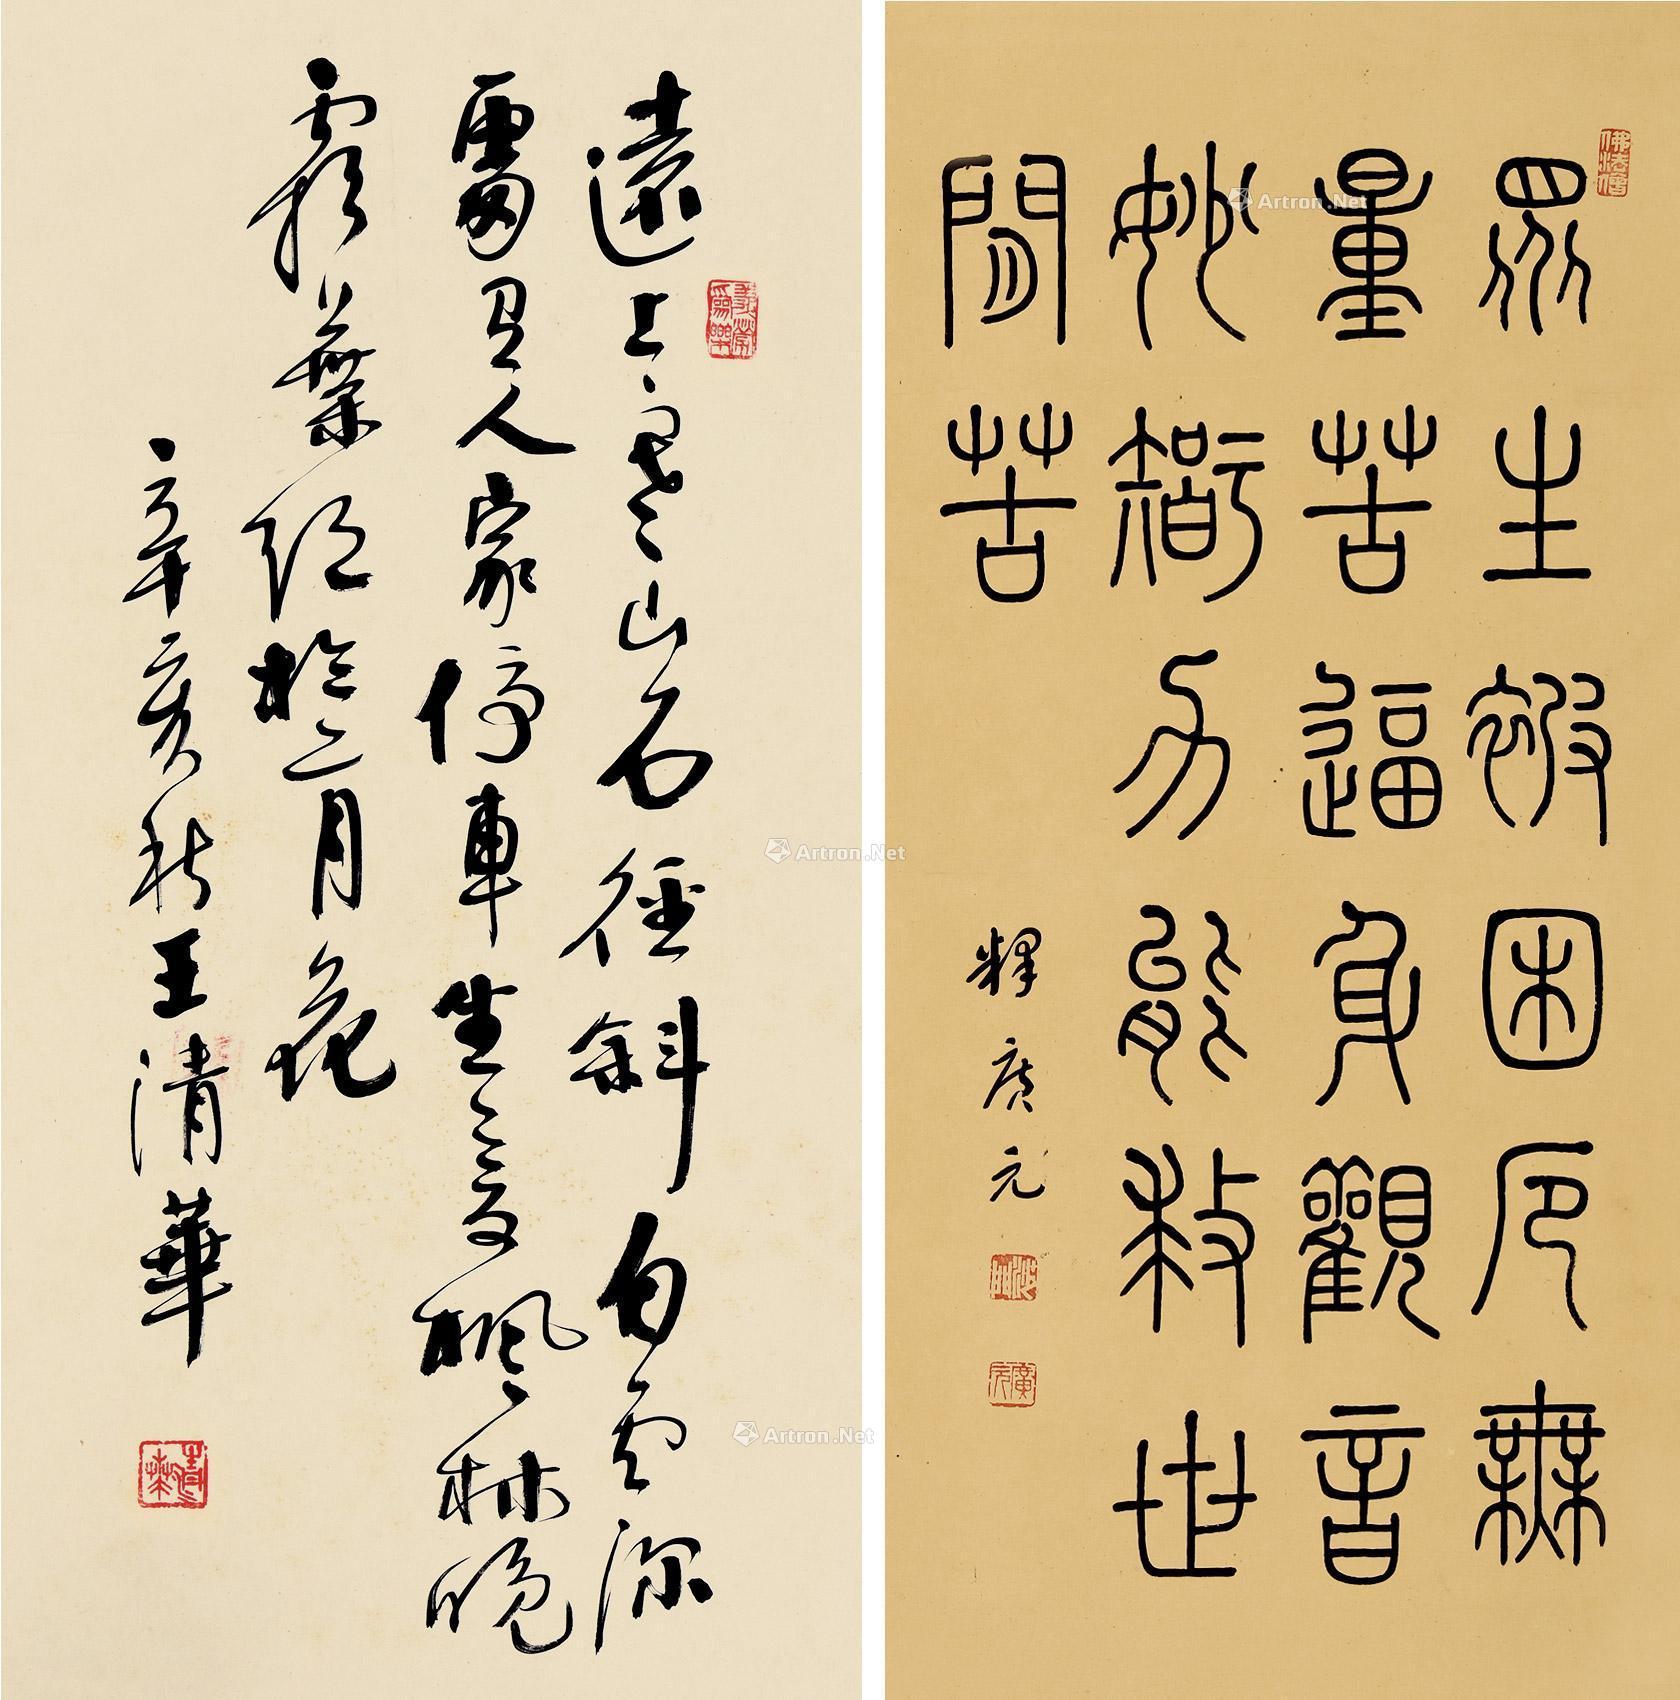 遠上寒山石徑斜白雲深
處有人家停車坐愛楓林晚
霜葉紅於二月花
辛亥秋王清華
佛法僧
眾生被困厄無
量苦逼身觀音
妙智力能救世
間苦
釋廣元
沙門
廣元
Artron.Net
Artron.Net
Artron.Net